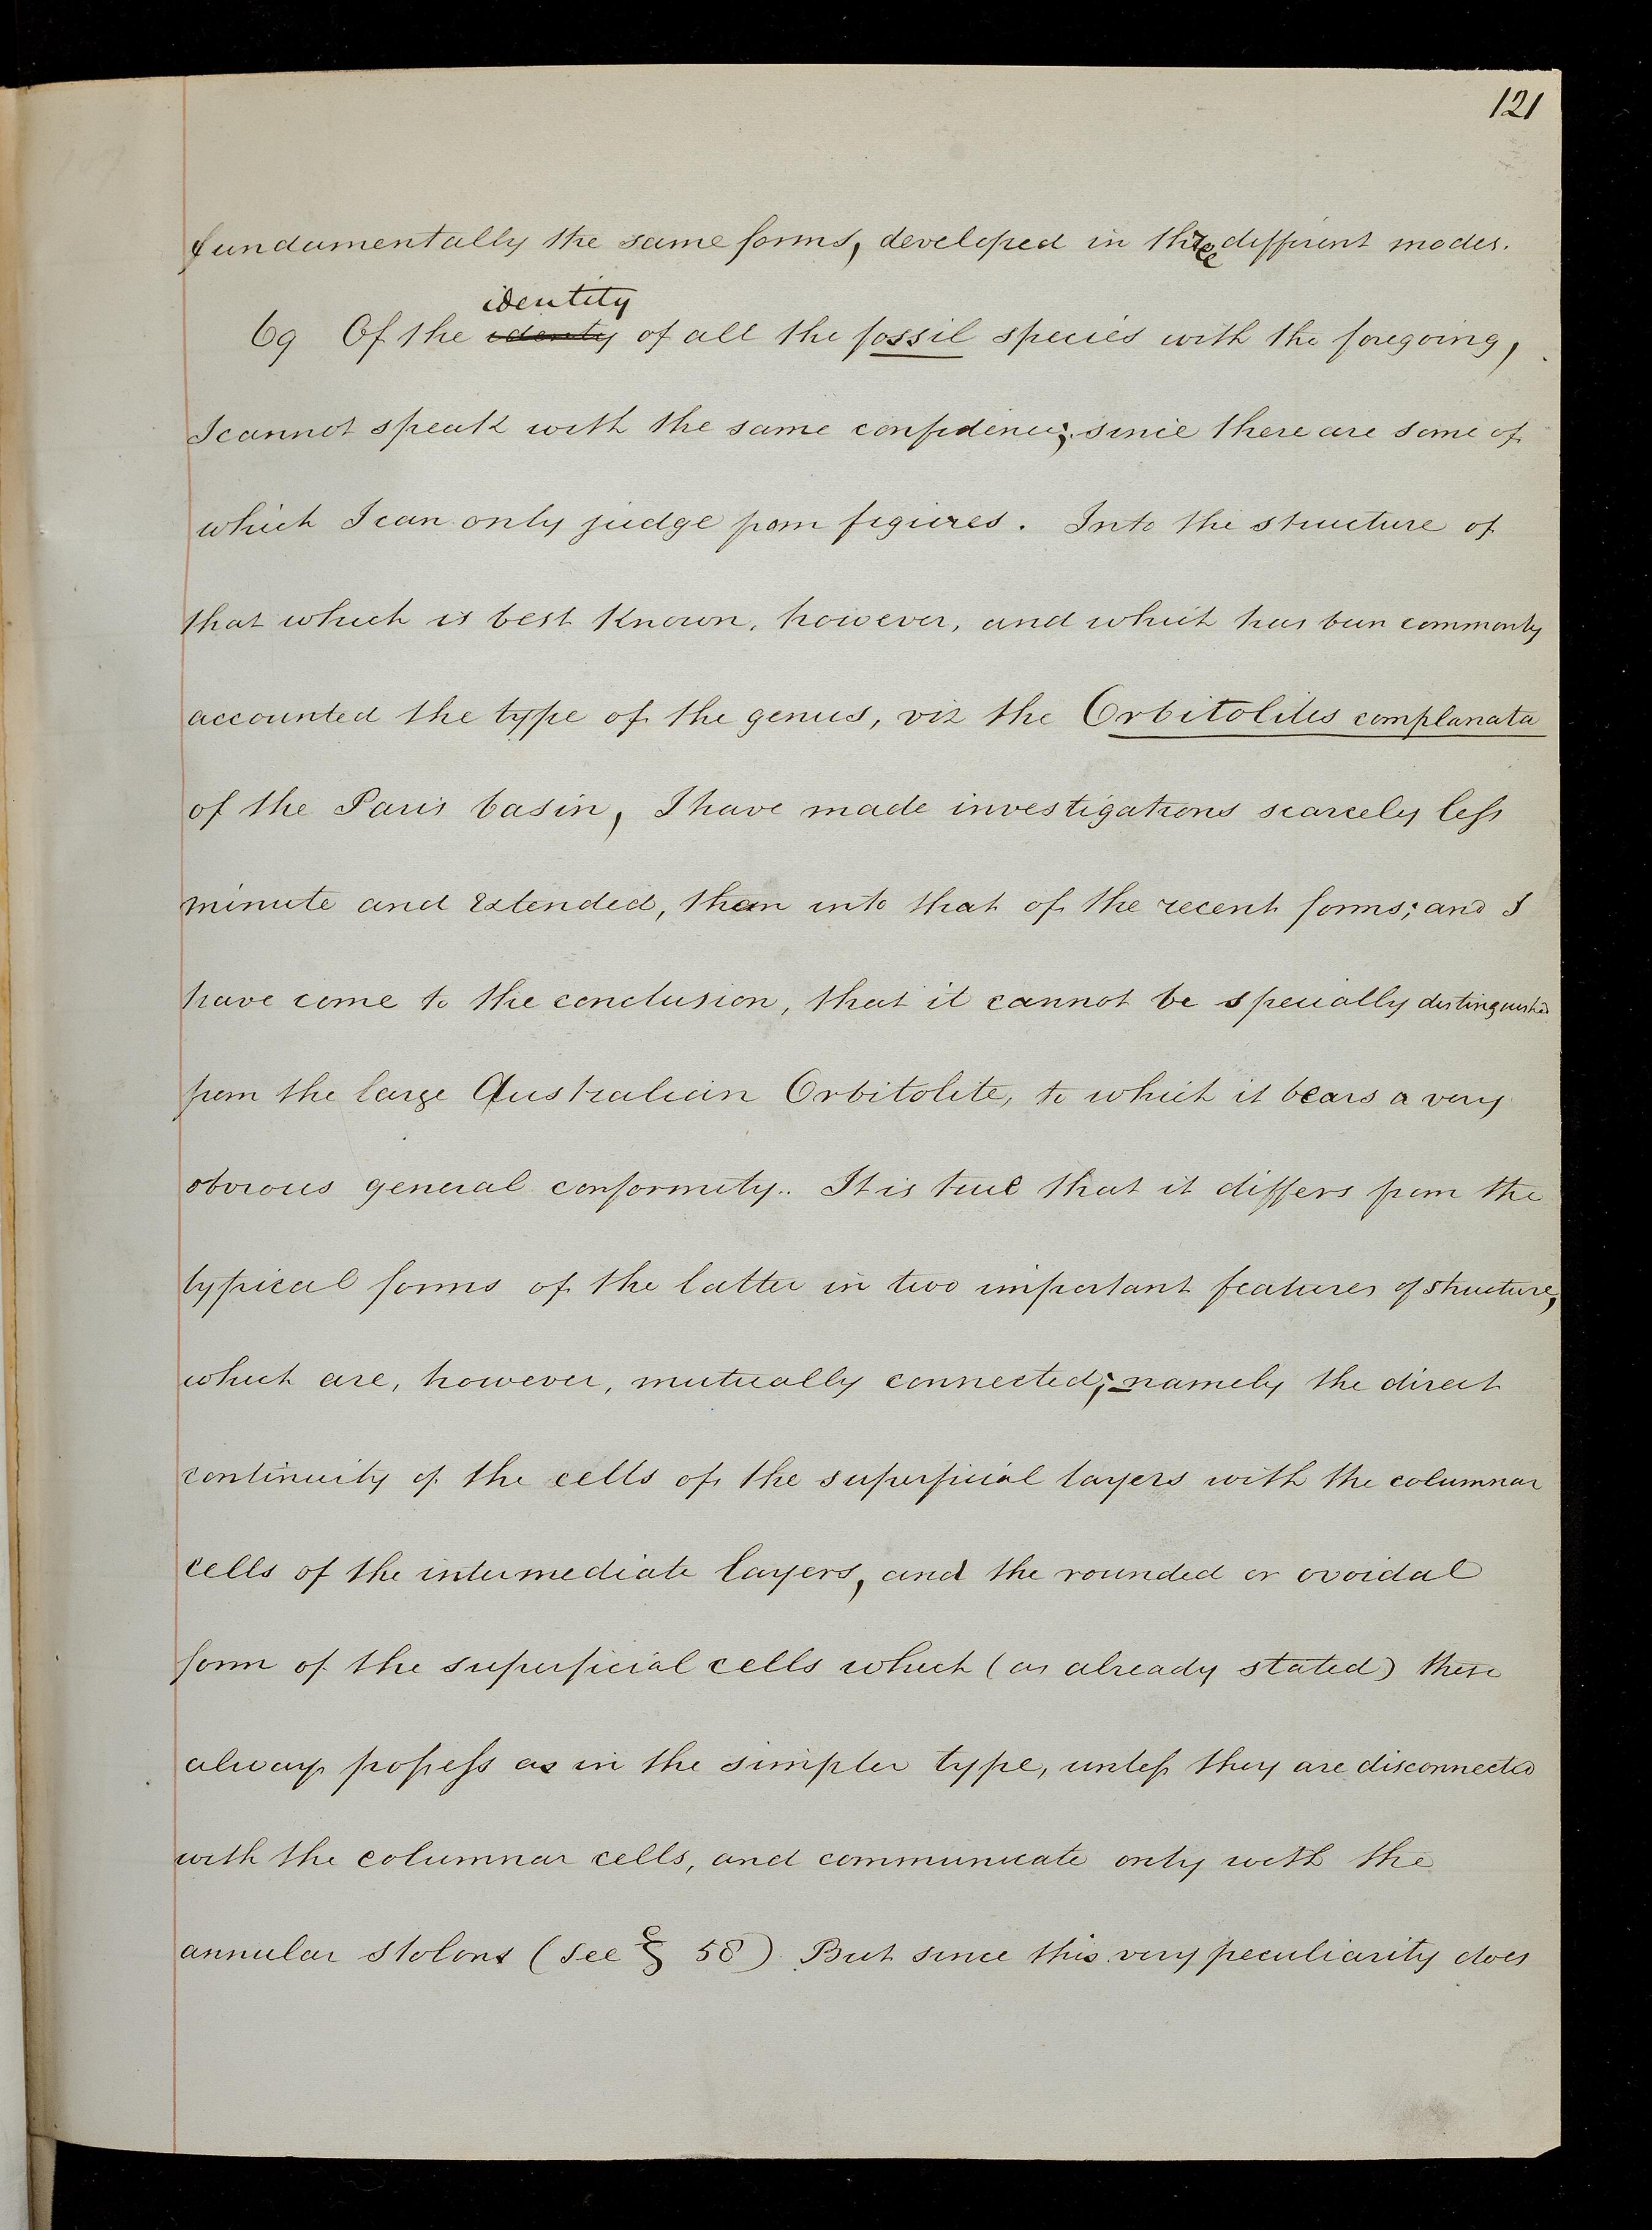 121
fundamentally the same forms, developed in three different modes.
identity
69 Of the identy of all the fossil species with the foregoing,
I cannot speak with the same confidence; since there are some of
which I can only judge from figures. Into the structure of
that which is best known, however, and which has been commonly
accounted the type of the genus, viz the Orbitolites complanata
of the Paris basin, I have made investigations scarcely less
minute and extended, than into that of the recent forms; and I
have come to the conclusion, that it cannot be specially distinguished
from the large Australian Orbitolite, to which it bears a very
obvious general conformity. It is true that it differs from the
typical forms of the latter in two important features of structure,
which are, however, mutually connected; namely the direct
continuity of the cells of the superficial layers with the columnar
cells of the intermediate layers, and the rounded or ovoidal
form of the superficial cells which (as already stated) these
always possess as in the simpler type, unless they are disconnected
with the columnar cells, and communicate only with the
annular stolons (see § 58) But since this very peculiarity does